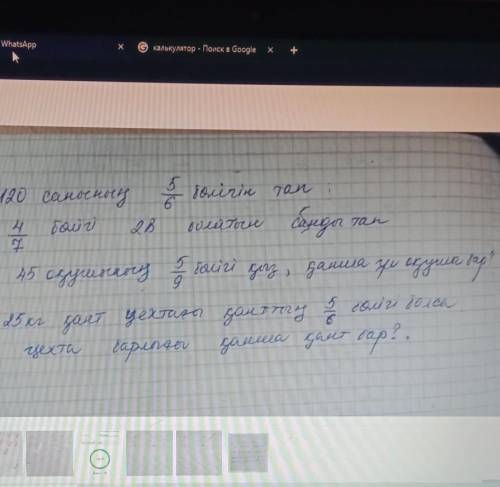 WhatsApp × калькулятор - Поиск в Google × +
120 санының 5/6 бөлігін тап
4/7 бөлігі 28 болатын санды тап
45 оқушының 5/9 бөлігі қыз, қанша ұл оқушы бар?
25кг қант цехтағы қанттың 5/6 бөлігі болса
цехта барлығы қанша қант бар?